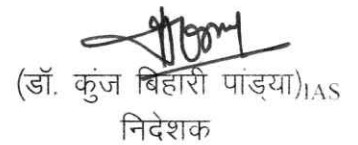 (डॉ. कुंज बिहारी पांड्या)IAS
निदेशक